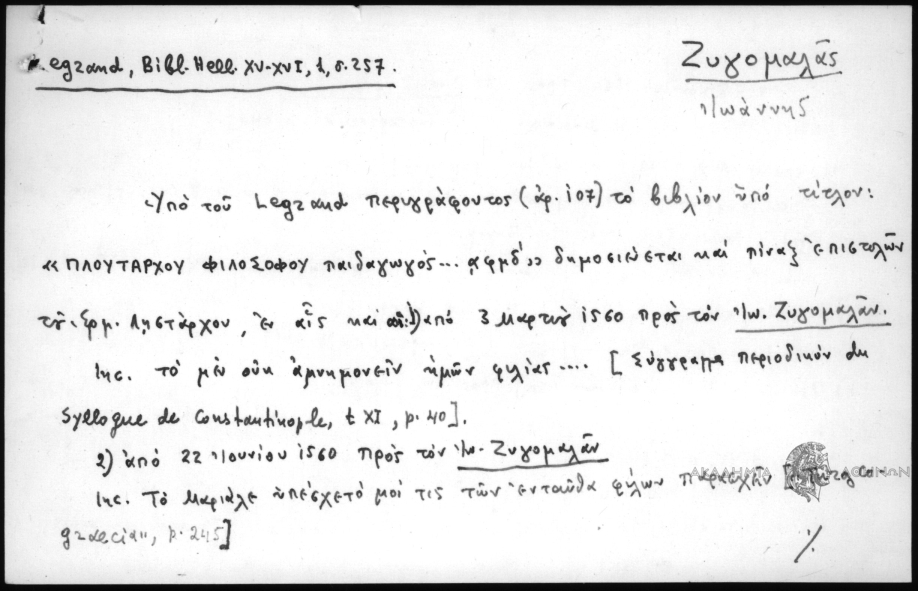 Legrand, Bibl. Hell. XV-XVI, 1, σ. 257.
Ζυγομαλᾶς
Ἰωάννης
Ὑπὸ τοῦ Legrand περιγράφοντος (ἀρ. 107) τὸ βιβλίον ὑπὸ τίτλον:
« ΠΛΟΥΤΑΡΧΟΥ ΦΙΛΟΣΟΦΟΥ παιδαγωγός... ͵αφμδ´» δημοσιεύεται καὶ πίναξ ἐπιστολῶν
τοῦ Ἑρμ. Ληστάρχου, ἐν αἷς καὶ 1) ἀπὸ 3 Μαρτίου 1560 πρὸς τὸν Ἰω. Ζυγομαλᾶν.
Inc. τὸ μὲν οὐκ ἀμνημονεῖν ἡμῶν φιλίας .... [ Σύγγραμμα περιοδικὸν du
Syllogue de Constantinople, t XI, p. 40].
2) ἀπὸ 22 Ἰουνίου 1560 πρὸς τὸν Ἰω. Ζυγομαλᾶν
Inc. Τὸ Μαριάλε ὑπέσχετό μοί τις τῶν ἐνταῦθα φίλων παρασχεῖν [„Turco-
graecia", p. 245]
ΑΚΑΔΗΜΙΑ ΑΘΗΝΩΝ
./.